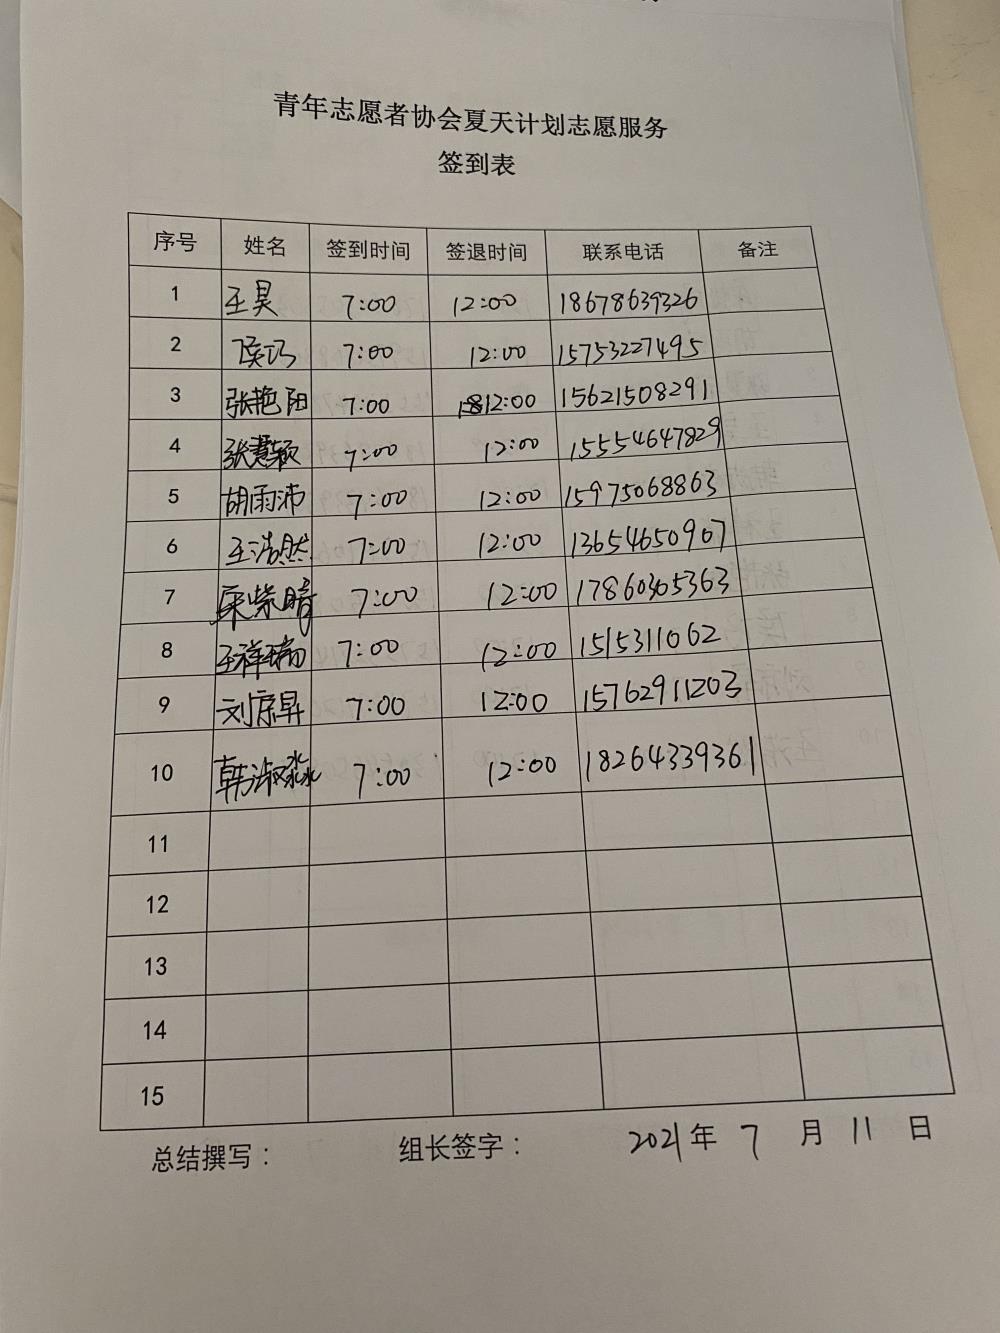 青年志愿者协会夏天计划志愿服务
签到表
序号 姓名 签到时间 签退时间 联系电话 备注
1 王昊 7:00 12:00 18678639326
2 7:00 12:00 15753227495
3 张艳阳 7:00 12:00 15621508291
4 张慧颖 7:00 12:00 15554647829
5 胡雨沛 7:00 12:00 15975068863
6 王浩然 7:00 12:00 13654650907
7 紫晴 7:00 12:00 17860305363
8 王祥瑞 7:00 12:00 1515311062
9 刘宗昇 7:00 12:00 15762911203
10 韩淑淼 7:00 12:00 18264339361
11
12
13
14
15
总结撰写： 组长签字： 2021年 7 月 11 日